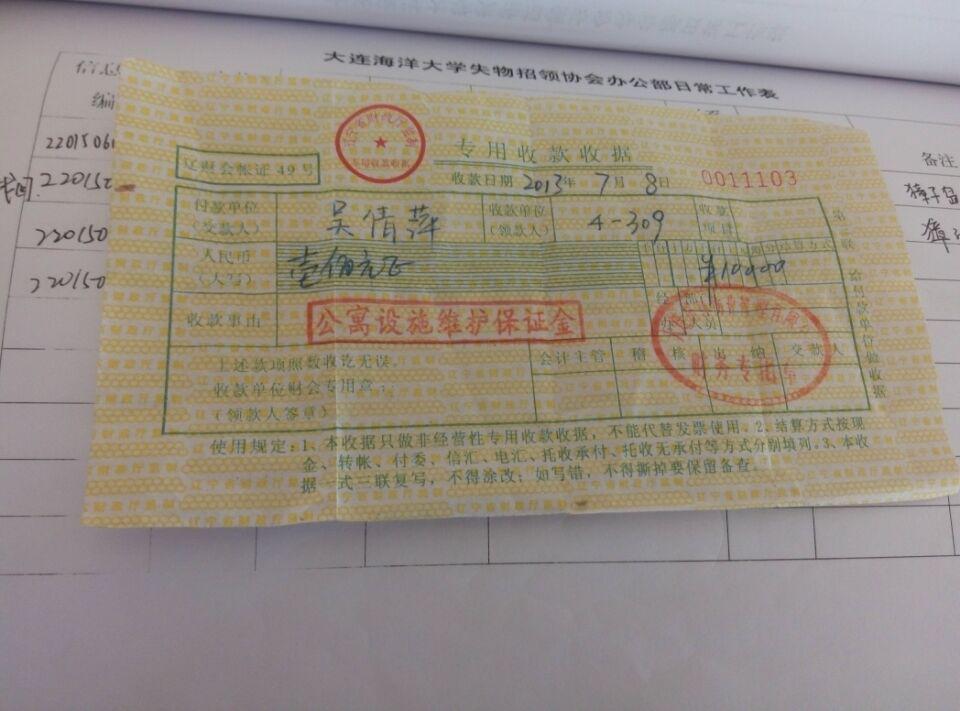 大连海洋大学失物招领协会办公部日常工作表
编
备注
2201506
22015
220150
220150
獐子岛
辽宁省财政厅监制
专用收款收据
辽财会帐证 49 号
专用收款收据
收款日期 2013年 7月 8日
0011103
付款单位
(交款人)
吴倩萍
收款单位
(领款人)
4-309
收款
项目
人民币
(大写)
壹佰元正
结算方式
¥10000
收款事由
公寓设施维护保证金
经
部门
办
人员
财务专
上述款项照数收讫无误。
收款单位财会专用章:
(领款人签章)
会计主管
稽 核
出 纳
交款人
第 联 给付款单位做收据
使用规定:1、本收据只做非经营性专用收款收据,不能代替发票使用。2、结算方式按现
金、转帐、付委、信汇、电汇、托收承付、托收无承付等方式分别填列。3、本收
据一式三联复写,不得涂改;如写错,不得撕掉要保留备查。